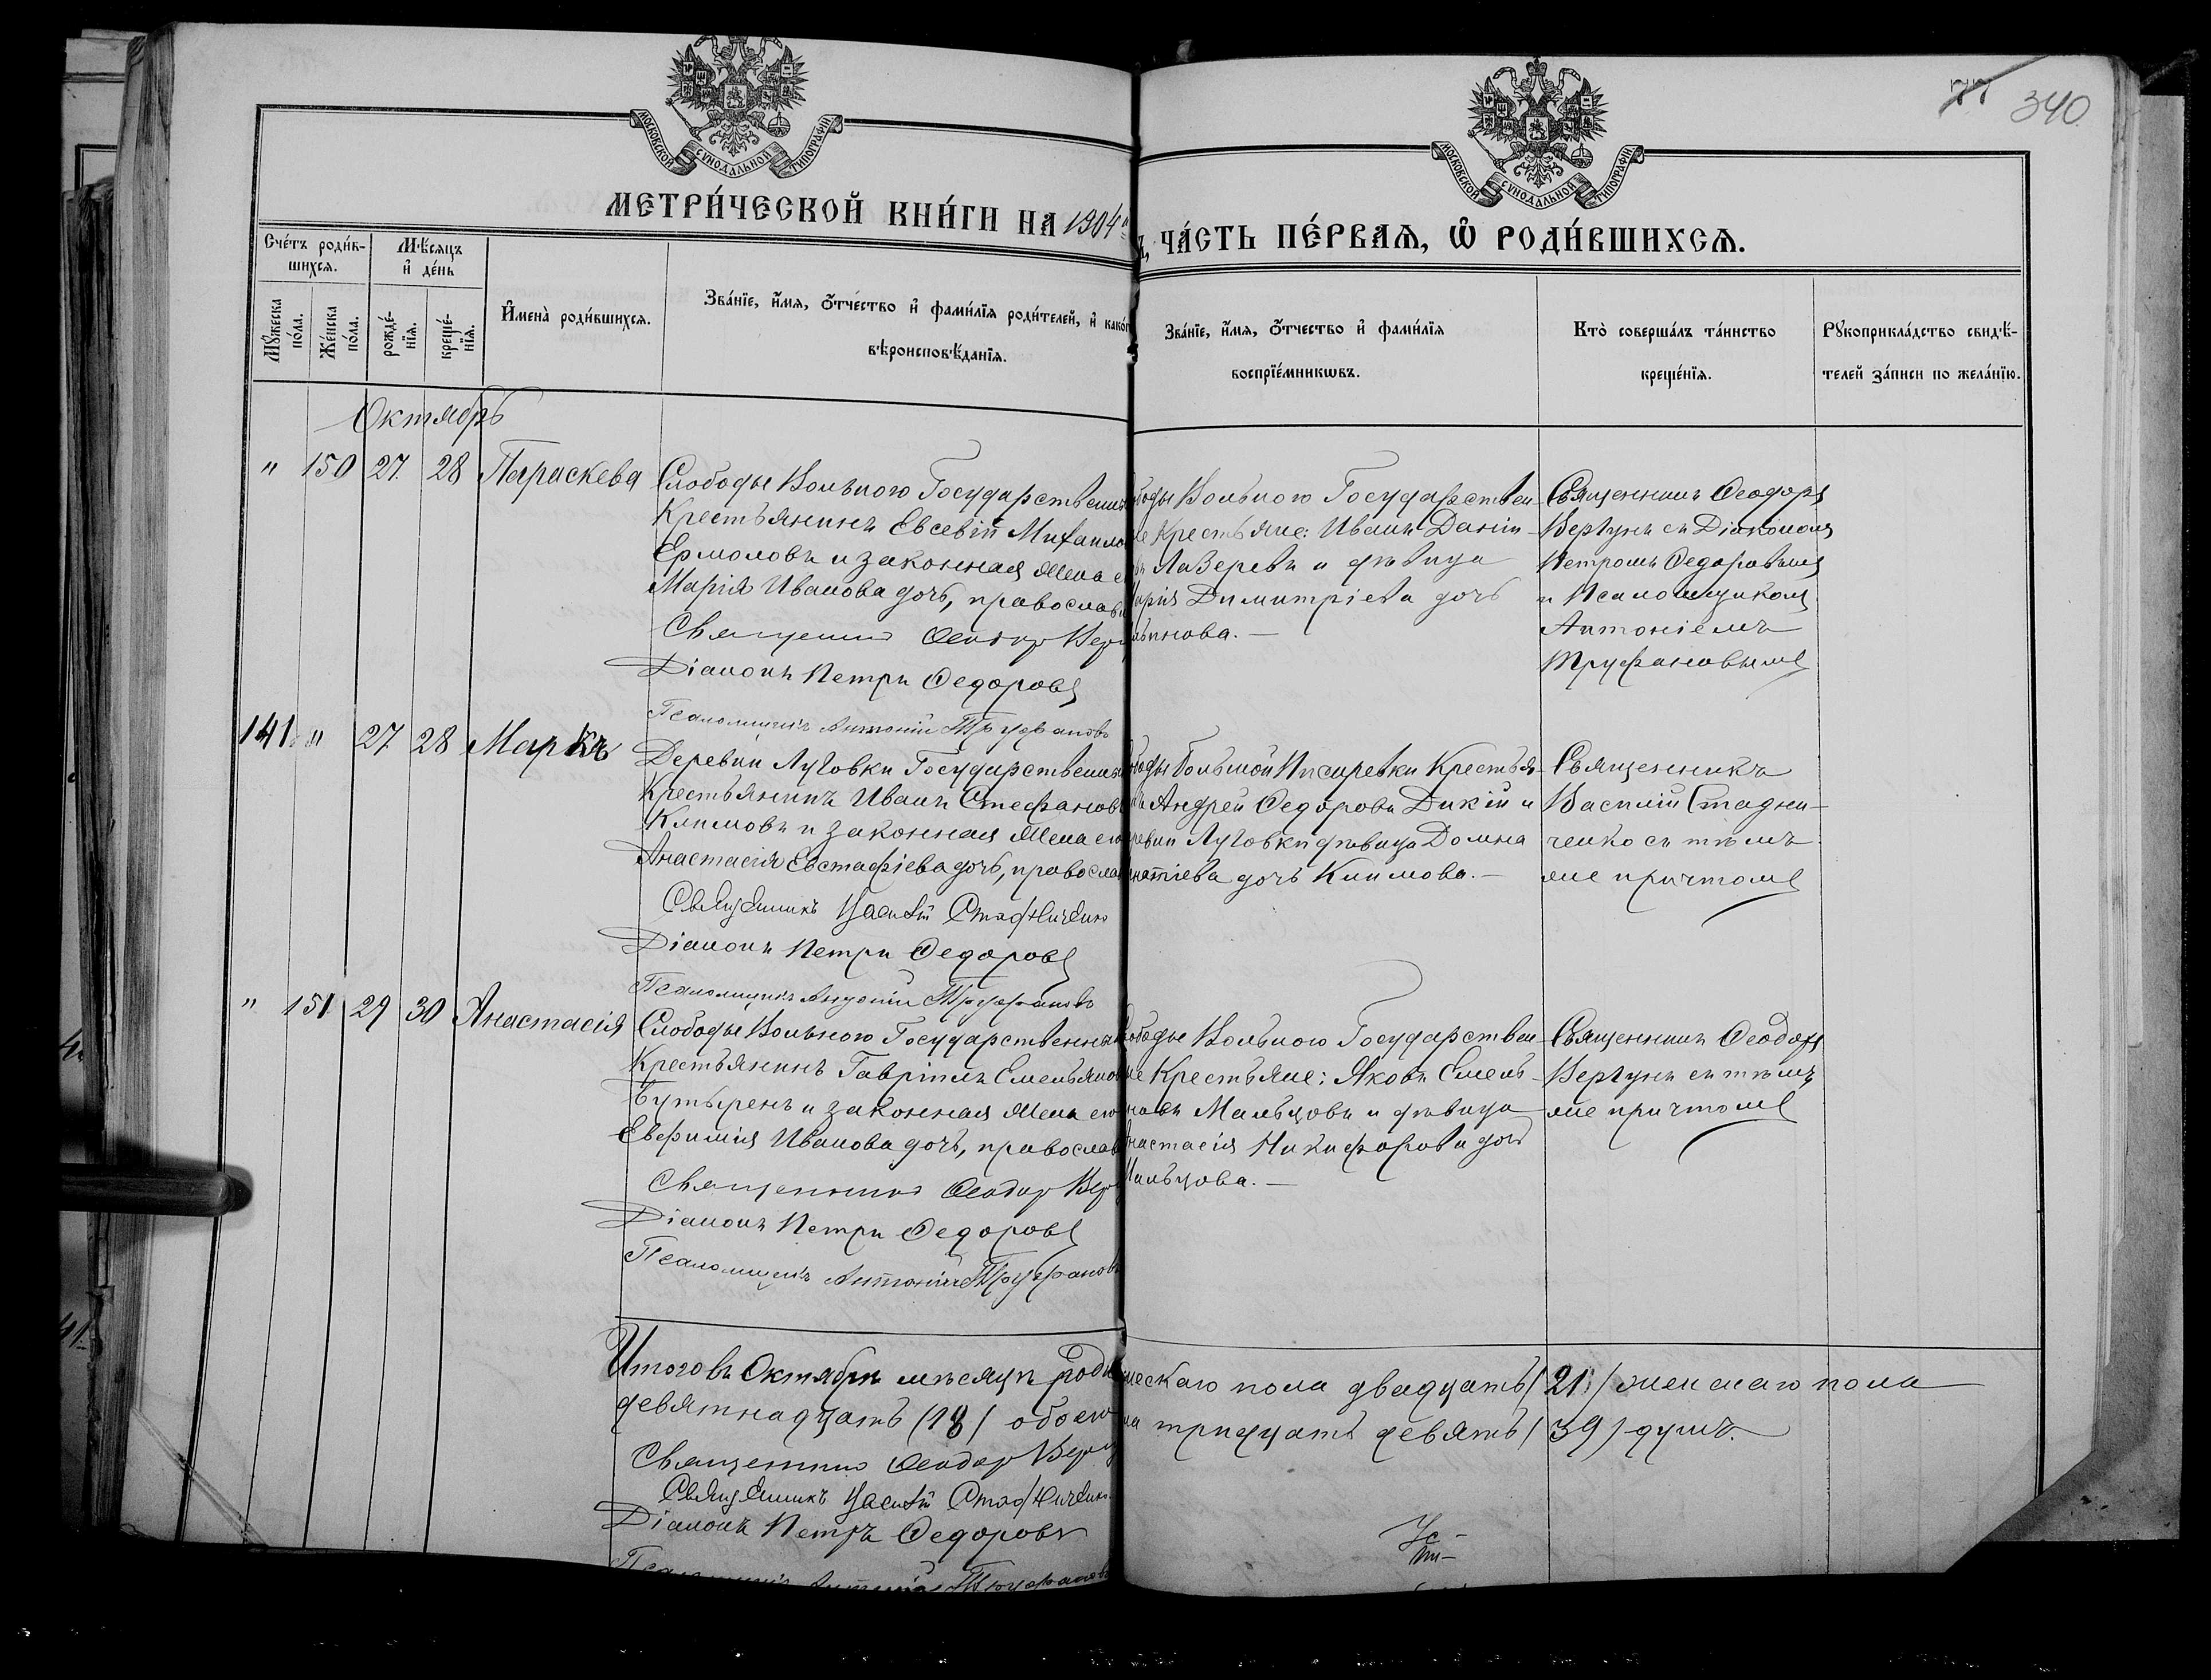 МОСКОВСКОЙ СУНОДАЛЬНОЙ ТИПОГРАФІИ
МОСКОВСКОЙ СУНОДАЛЬНОЙ ТИПОГРАФІИ
340
МЕТРИ́ЧЕСКОЙ КНИ́ГИ НА 1904
ЧА́СТЬ ПЕ́РВАѦ, Ѡ҆ РОДИ́ВШИХСѦ.
Сче́тъ роди́в-
шихсѧ.
Мѣ́сѧцъ
и҆ де́нь
Мꙋ́жеска
по́ла.
Же́нска
по́ла.
рожде́-
нїѧ.
креще́-
нїѧ.
И҆мена̀ роди́вшихсѧ.
Зва́нїе, и҆́мѧ, ѻ҆́тчество и҆ фами́лїѧ роди́телей, и҆ како́г
вѣроисповѣ́данїѧ.
Зва́нїе, и҆́мѧ, ѻ҆́тчество и҆ фами́лїѧ
воспрїе́мникѡвъ.
Кто̀ соверша́лъ та́инство
креще́нїѧ.
Рꙋкоприкла́дство свидѣ́-
телей за́писи по жела́нїю.
Октябрь
" 150 27 28 Параскева
Слободы Вольного Государственны
Крестьянинъ Евсевій Михаило
Ермоловъ и законная жена е
Марія Иванова дочь, православ
Священник Феодор Вер
Діаконъ Петръ Федоровъ
Псаломщикъ Антоній Труфановъ
боды Вольного Государствен-
е Крестьяне: Иванъ Даніи-
Лазеревъ и дѣвица
арія Димитріева дочь
Священникъ Феодоръ
Вергунъ съ Діакономъ
Петромъ Федоровымъ
и Псаломщикомъ
Антоніемъ
Труфановымъ
141 " 27 28 Маркъ
Деревни Луговки Государственны
Крестьянинъ Иванъ Стефановъ
Климовъ и законная жена его
Анастасія Евстафіева дочь, правосла
Священникъ Василій Стадниченко
Діаконъ Петръ Федоровъ
Псаломщикъ Антоній Труфановъ
боды Большой Писаревки Крестья-
Андрей Федоровъ Дикій и
ревни Луговки дѣвица Домна
дочь Климова.—
Священникъ
Василій Стадни-
ченко съ тѣмъ
же причтомъ
" 151 29 30 Анастасія
Слободы Вольного Государственны
Крестьянинъ Гавріилъ Емельянов
Бутыренъ и законная жена его
Евфимія Иванова дочь, православ
Священникъ Феодор Вер
Діаконъ Петръ Федоровъ
Псаломщикъ Антоній Труфановъ
ободы Вольного Государствен-
е Крестьяне: Яковъ Емель-
новъ Мальцовъ и дѣвица
настасія Никифорова дочь
Мальцова.—
Священникъ Феодоръ
Вергунъ съ тѣмъ
же причтомъ
Итого въ Октябрѣ мѣсяцѣ роди
жескаго пола двадцать (21) женскаго пола
девятнадцать (18) обоего
ла тридцать девять (39) душъ.
Священник Феодор Верг
Священникъ Василій Стадниченко
Діаконъ Петръ Федоровъ
Псаломщикъ Антоній Труфановъ